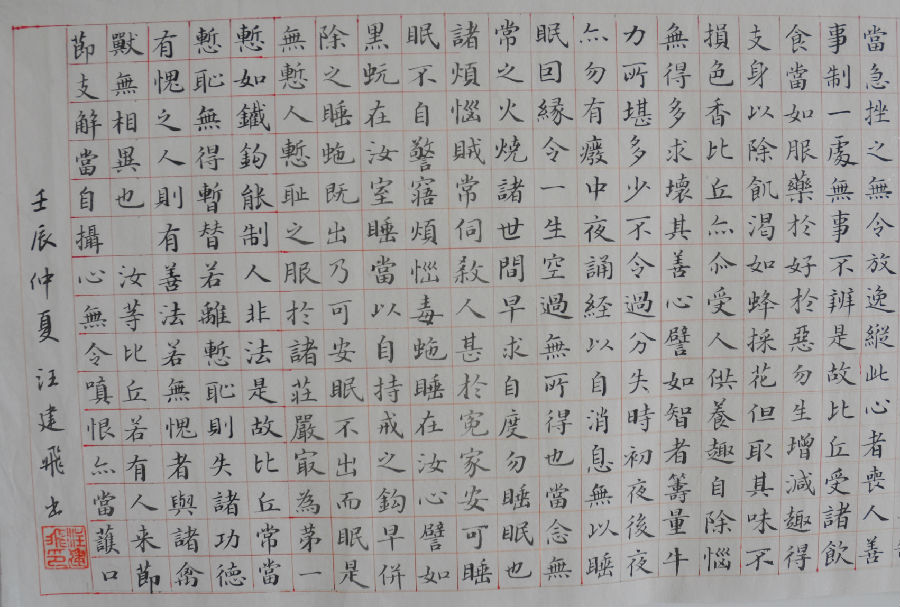 當急挫之無令放逸縱此心者喪人善
事制一處無事不辨是故比丘受諸飲
食當如服藥於好於惡勿生增減趣得
支身以除飢渴如蜂採花但取其味不
損色香比丘亦尒受人供養趣自除惱
無得多求壞其善心譬如智者籌量牛
力所堪多少不令過分失時初夜後夜
亦勿有癈中夜誦経以自消息無以睡
眠因緣令一生空過無所得也當念無
常之火燒諸世間早求自度勿睡眠也
諸煩惱賊常伺殺人甚於冤家安可睡
眠不自警寤煩惱毒虵睡在汝心譬如
黑蚖在汝室睡當以自持戒之鈎早併
除之睡虵既出乃可安眠不出而眠是
無慙人慙耻之服於諸莊嚴冣為第一
慙如鐵鈎能制人非法是故比丘常當
慙恥無得暫替若離慙恥則失諸功德
有愧之人則有善法若無愧者與諸禽
獸無相異也 汝等比丘若有人来節
節支解當自攝心無令嗔恨亦當護口
壬辰仲夏汪建飛书
汪建飛印